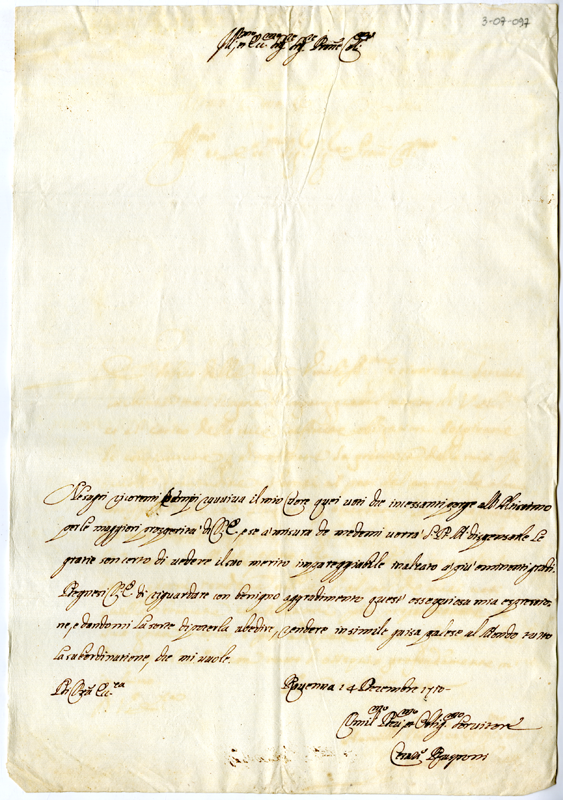 3-07-097
Ill.mo et Ecc. Sig.
Ne sagri ricorenti tempi raviva il mio Core quei voti che incessanti porge all'Altissimo
per le maggiori prosperità di V.E., e se a misura de medemi verrà S.D.M. dispensarle Le
gratie son certo di vedere il suo merito impareggiabile inalzato a più eminenti gradi.
Degnesi V.E. di riguardare con benigno aggradimento quest'ossequiosa mia espressio-
ne, e dandomi la sorte di poterla ubedire, rendere in simile guisa palese al Mondo tutto
la subordinatione, che mi vuole.
Di V. Ecc.za
Ravenna 14 Decembre 1710
Umil. Dev. et Oblig. Servitore